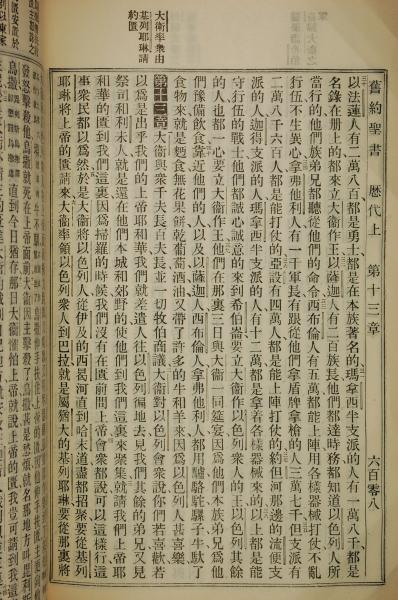 舊約聖書 歷代上 第十三章 六百零八
以法蓮人有二萬八百都是勇士都是在本族著名的瑪拿西半支派的人有一萬八千都是
名錄在册上的都來立大衛作王以薩迦人有二百族長他們都達時務都知道以色列人所
當行的他們族弟兄都聽從他們的命令西布倫人有五萬都能上陣用各樣器械打仗不亂
行伍不生異心拿弗他利人有一千軍長有跟從他們拿盾牌拿槍的人三萬七千但支派有
二萬八千六百人都是能打仗的亞設有四萬人都是能上陣打仗的約但河那邊的流便支
派的人迦得支派的人瑪拿西半支派的人有十二萬都是拿着各樣器械來的以上都是能
守行伍的戰士他們都誠心誠意的來到希伯崙要立大衛作以色列衆人的王以色列其餘
的人也都一心要立大衛作王他們在那裏三日與大衛一同筵宴因爲他們本族弟兄爲他
們豫備飲食靠近他們的人以及以薩迦人西布倫人拿弗他利人都用驢駱駝騾子牛馱了
食物來就是麪食無花果餅乾葡萄酒油又帶了許多的牛和羊來因爲以色列人甚喜樂
大衛率衆由基列耶琳請約匱
第十三章 大衛與衆千夫長百夫長並一切牧伯商議大衛對以色列會衆說你們若喜歡若
以爲是出乎我們的上帝耶和華我們就差遣人往以色列徧地去見我們其餘的弟兄又見
祭司和利未人就是還在他們本城和郊野的使他們到我們這裏來聚集就請我們上帝耶
和華的匱到我們這裏因爲掃羅的時候我們沒有在匱前問上帝會衆都說可以這樣行這
事衆民都以爲然於是大衛將以色列人從伊及的西曷河直到哈末道盡都招聚要從基列
耶琳將上帝的匱請來大衛率領以色列衆人到巴拉就是屬猶大的基列耶琳要從那裏將